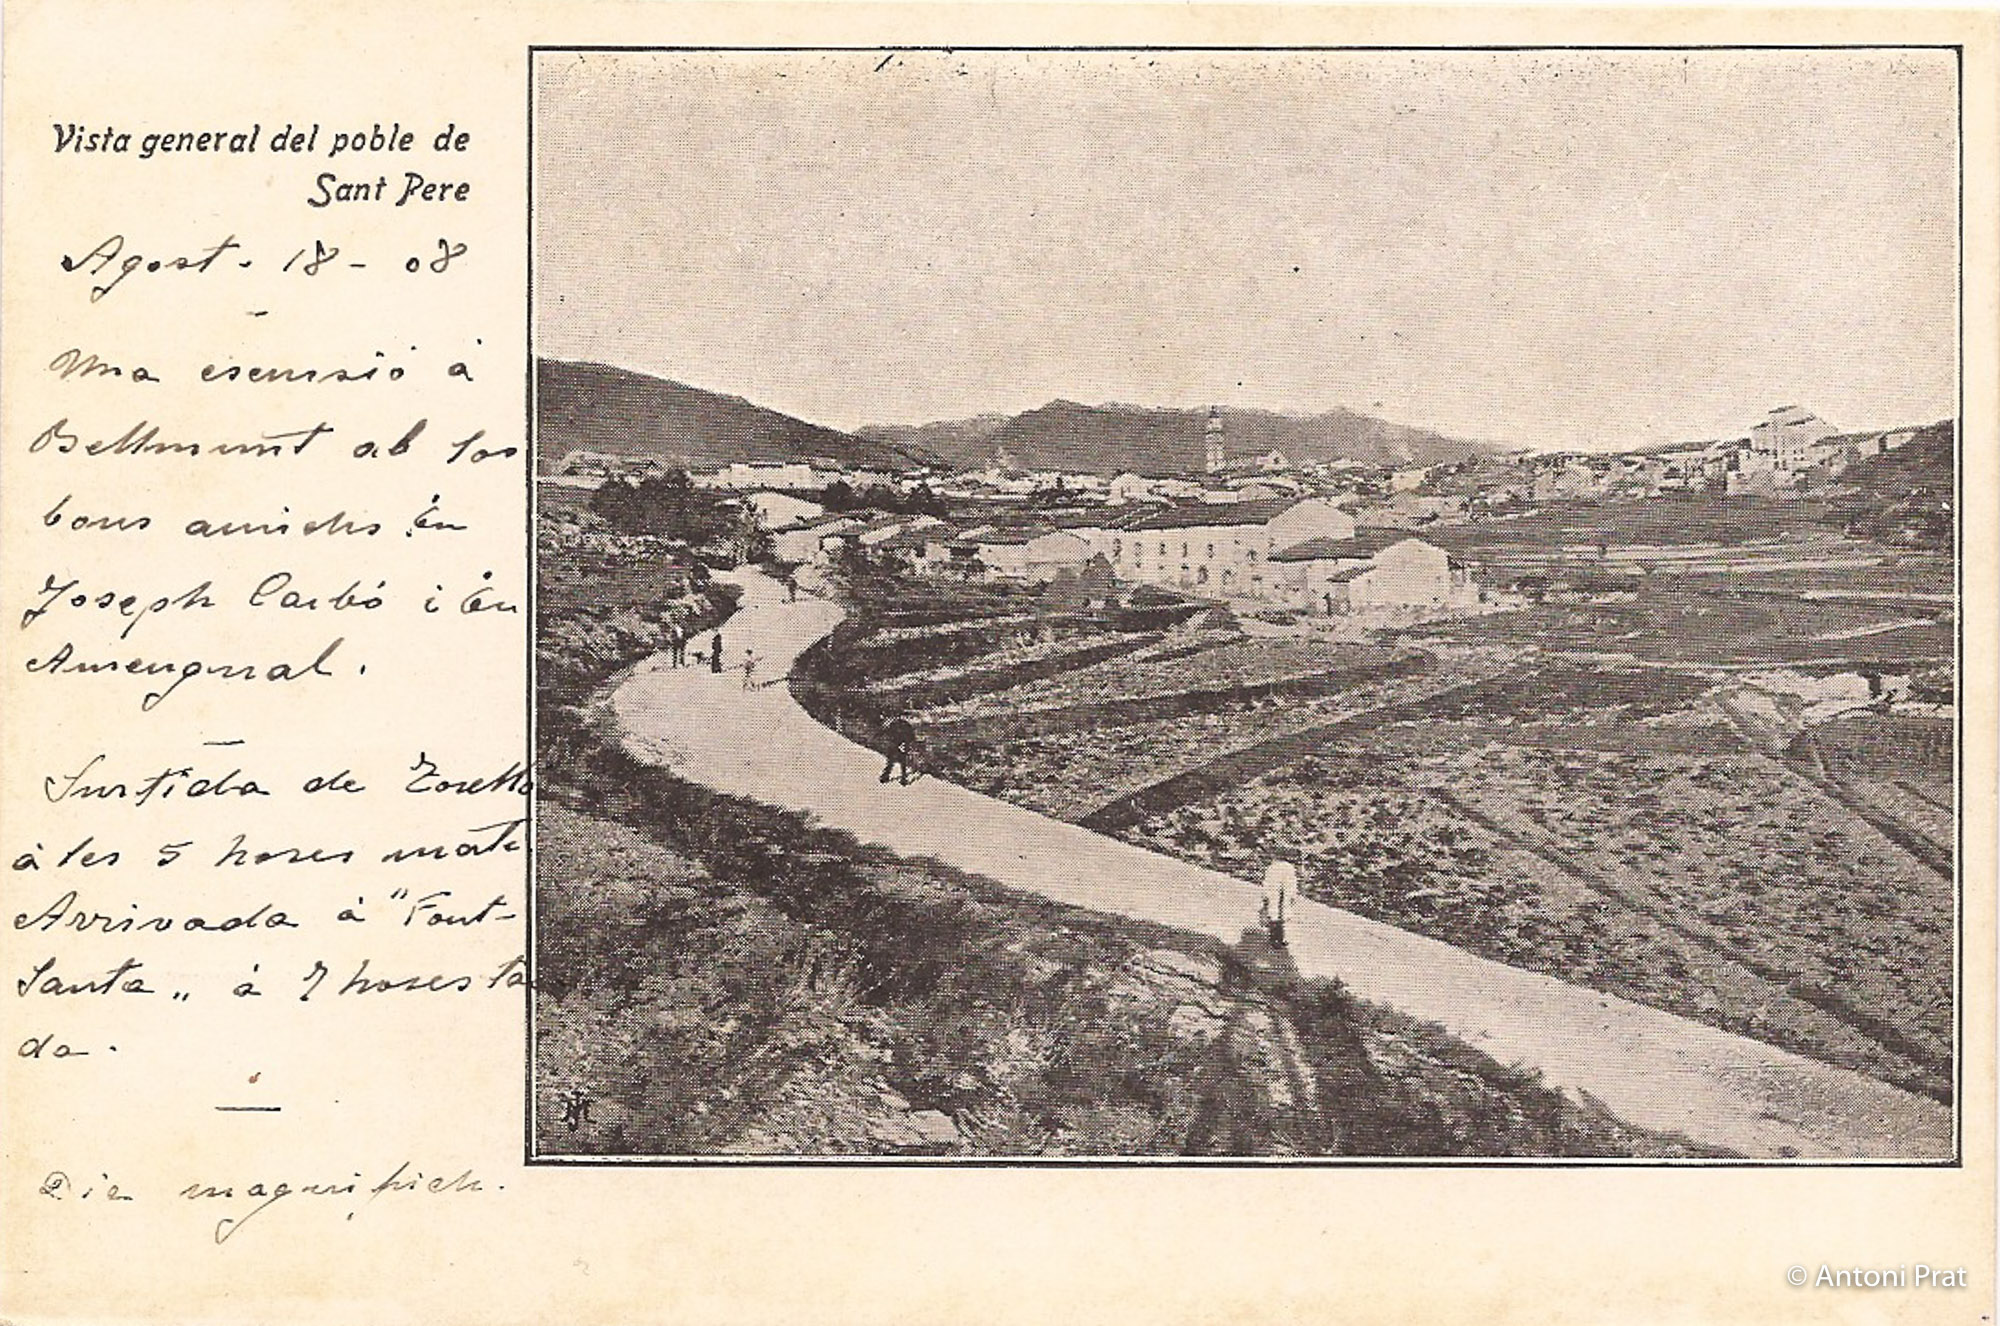 Vista general del poble de
Sant Pere
Agost - 18 - 08
Una escursió à
Bellmunt ab los
bons amichs En
Joseph Carbó i En
Amengual.
Surtida de Torelló
à les 5 hores mati
Arrivada à "Font-
Santa„ à 7 hores ta
da.
Dia magnifich.
© Antoni Prat